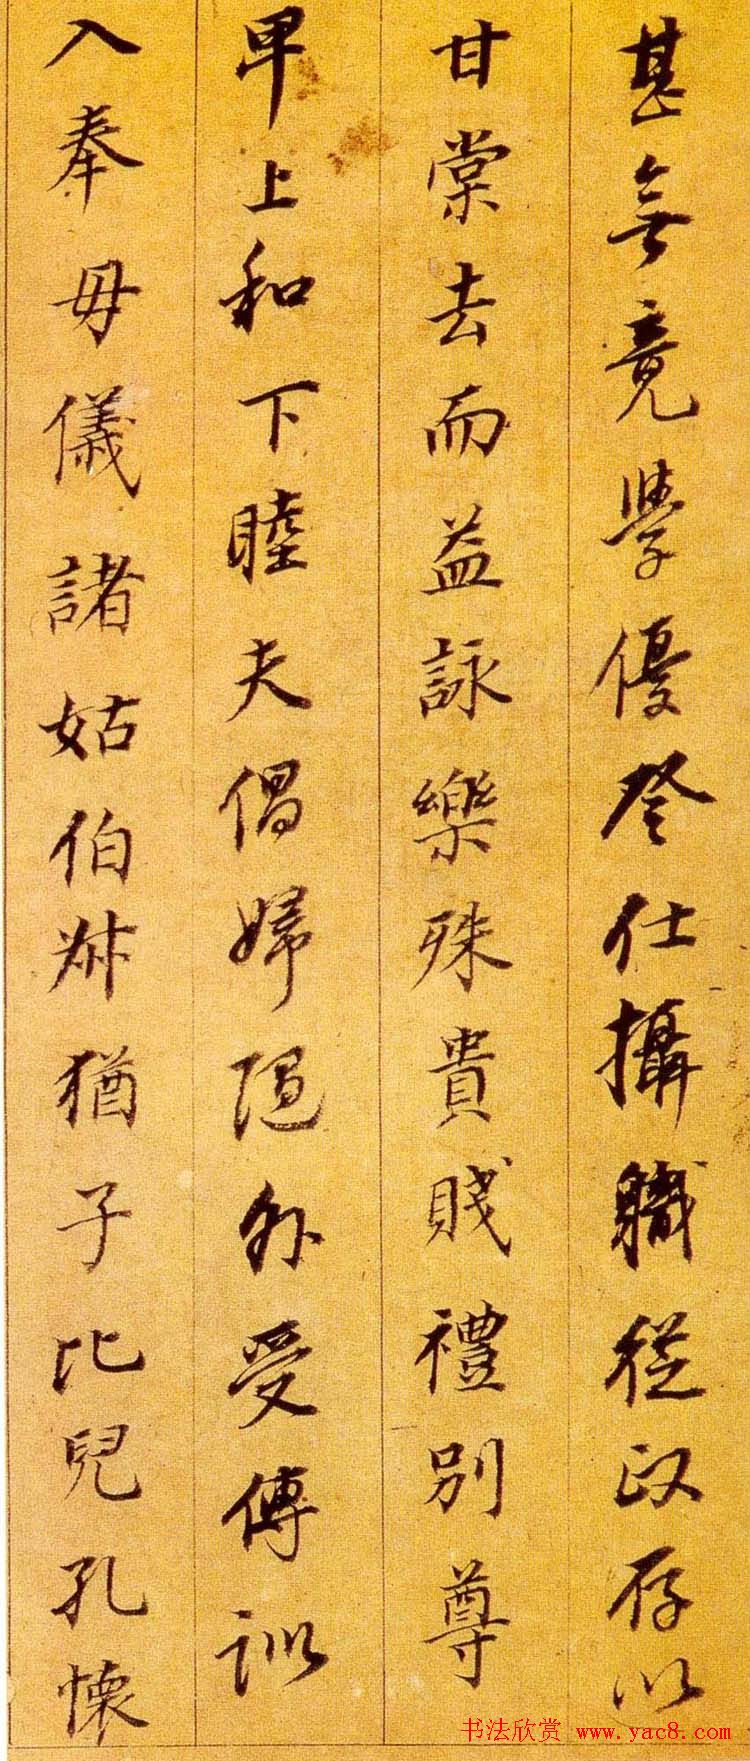 甚無竟學優登仕攝職從政存以
甘棠去而益詠樂殊貴賤禮別尊
卑上和下睦夫倡婦隨外受傅訓
入奉母儀諸姑伯叔猶子比兒孔懷
书法欣赏 www.yac8.com